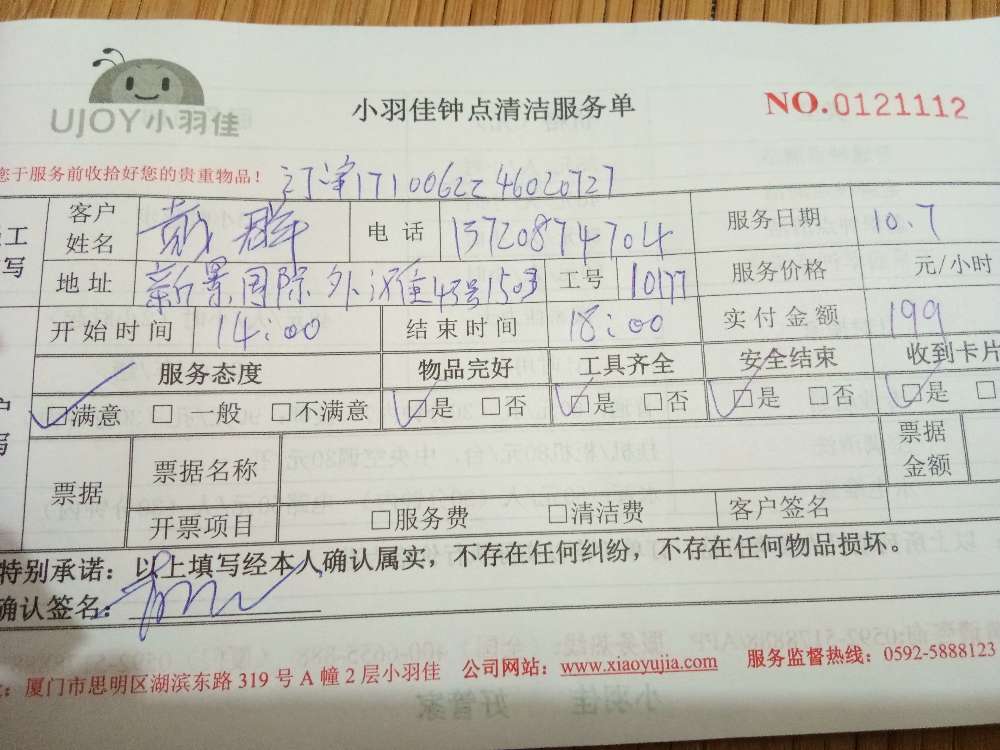 UJOY小羽佳
小羽佳钟点清洁服务单
NO.0121112
您于服务前收拾好您的贵重物品!
订单1710062246020727
客户姓名 戴群 电话 13720874704 服务日期 10.7
地址 新景国际外滩43号1503 工号 10177 服务价格 元/小时
开始时间 14:00 结束时间 18:00 实付金额 199
服务态度 物品完好 工具齐全 安全结束 收到卡片
□满意 □一般 □不满意 □是 □否 □是 □否 □是 □否 □是 □
票据 票据名称 票据金额
开票项目 □服务费 □清洁费 客户签名
特别承诺:以上填写经本人确认属实,不存在任何纠纷,不存在任何物品损坏。
确认签名:
厦门市思明区湖滨东路319号A幢2层小羽佳 公司网站:www.xiaoyujia.com 服务监督热线:0592-5888123